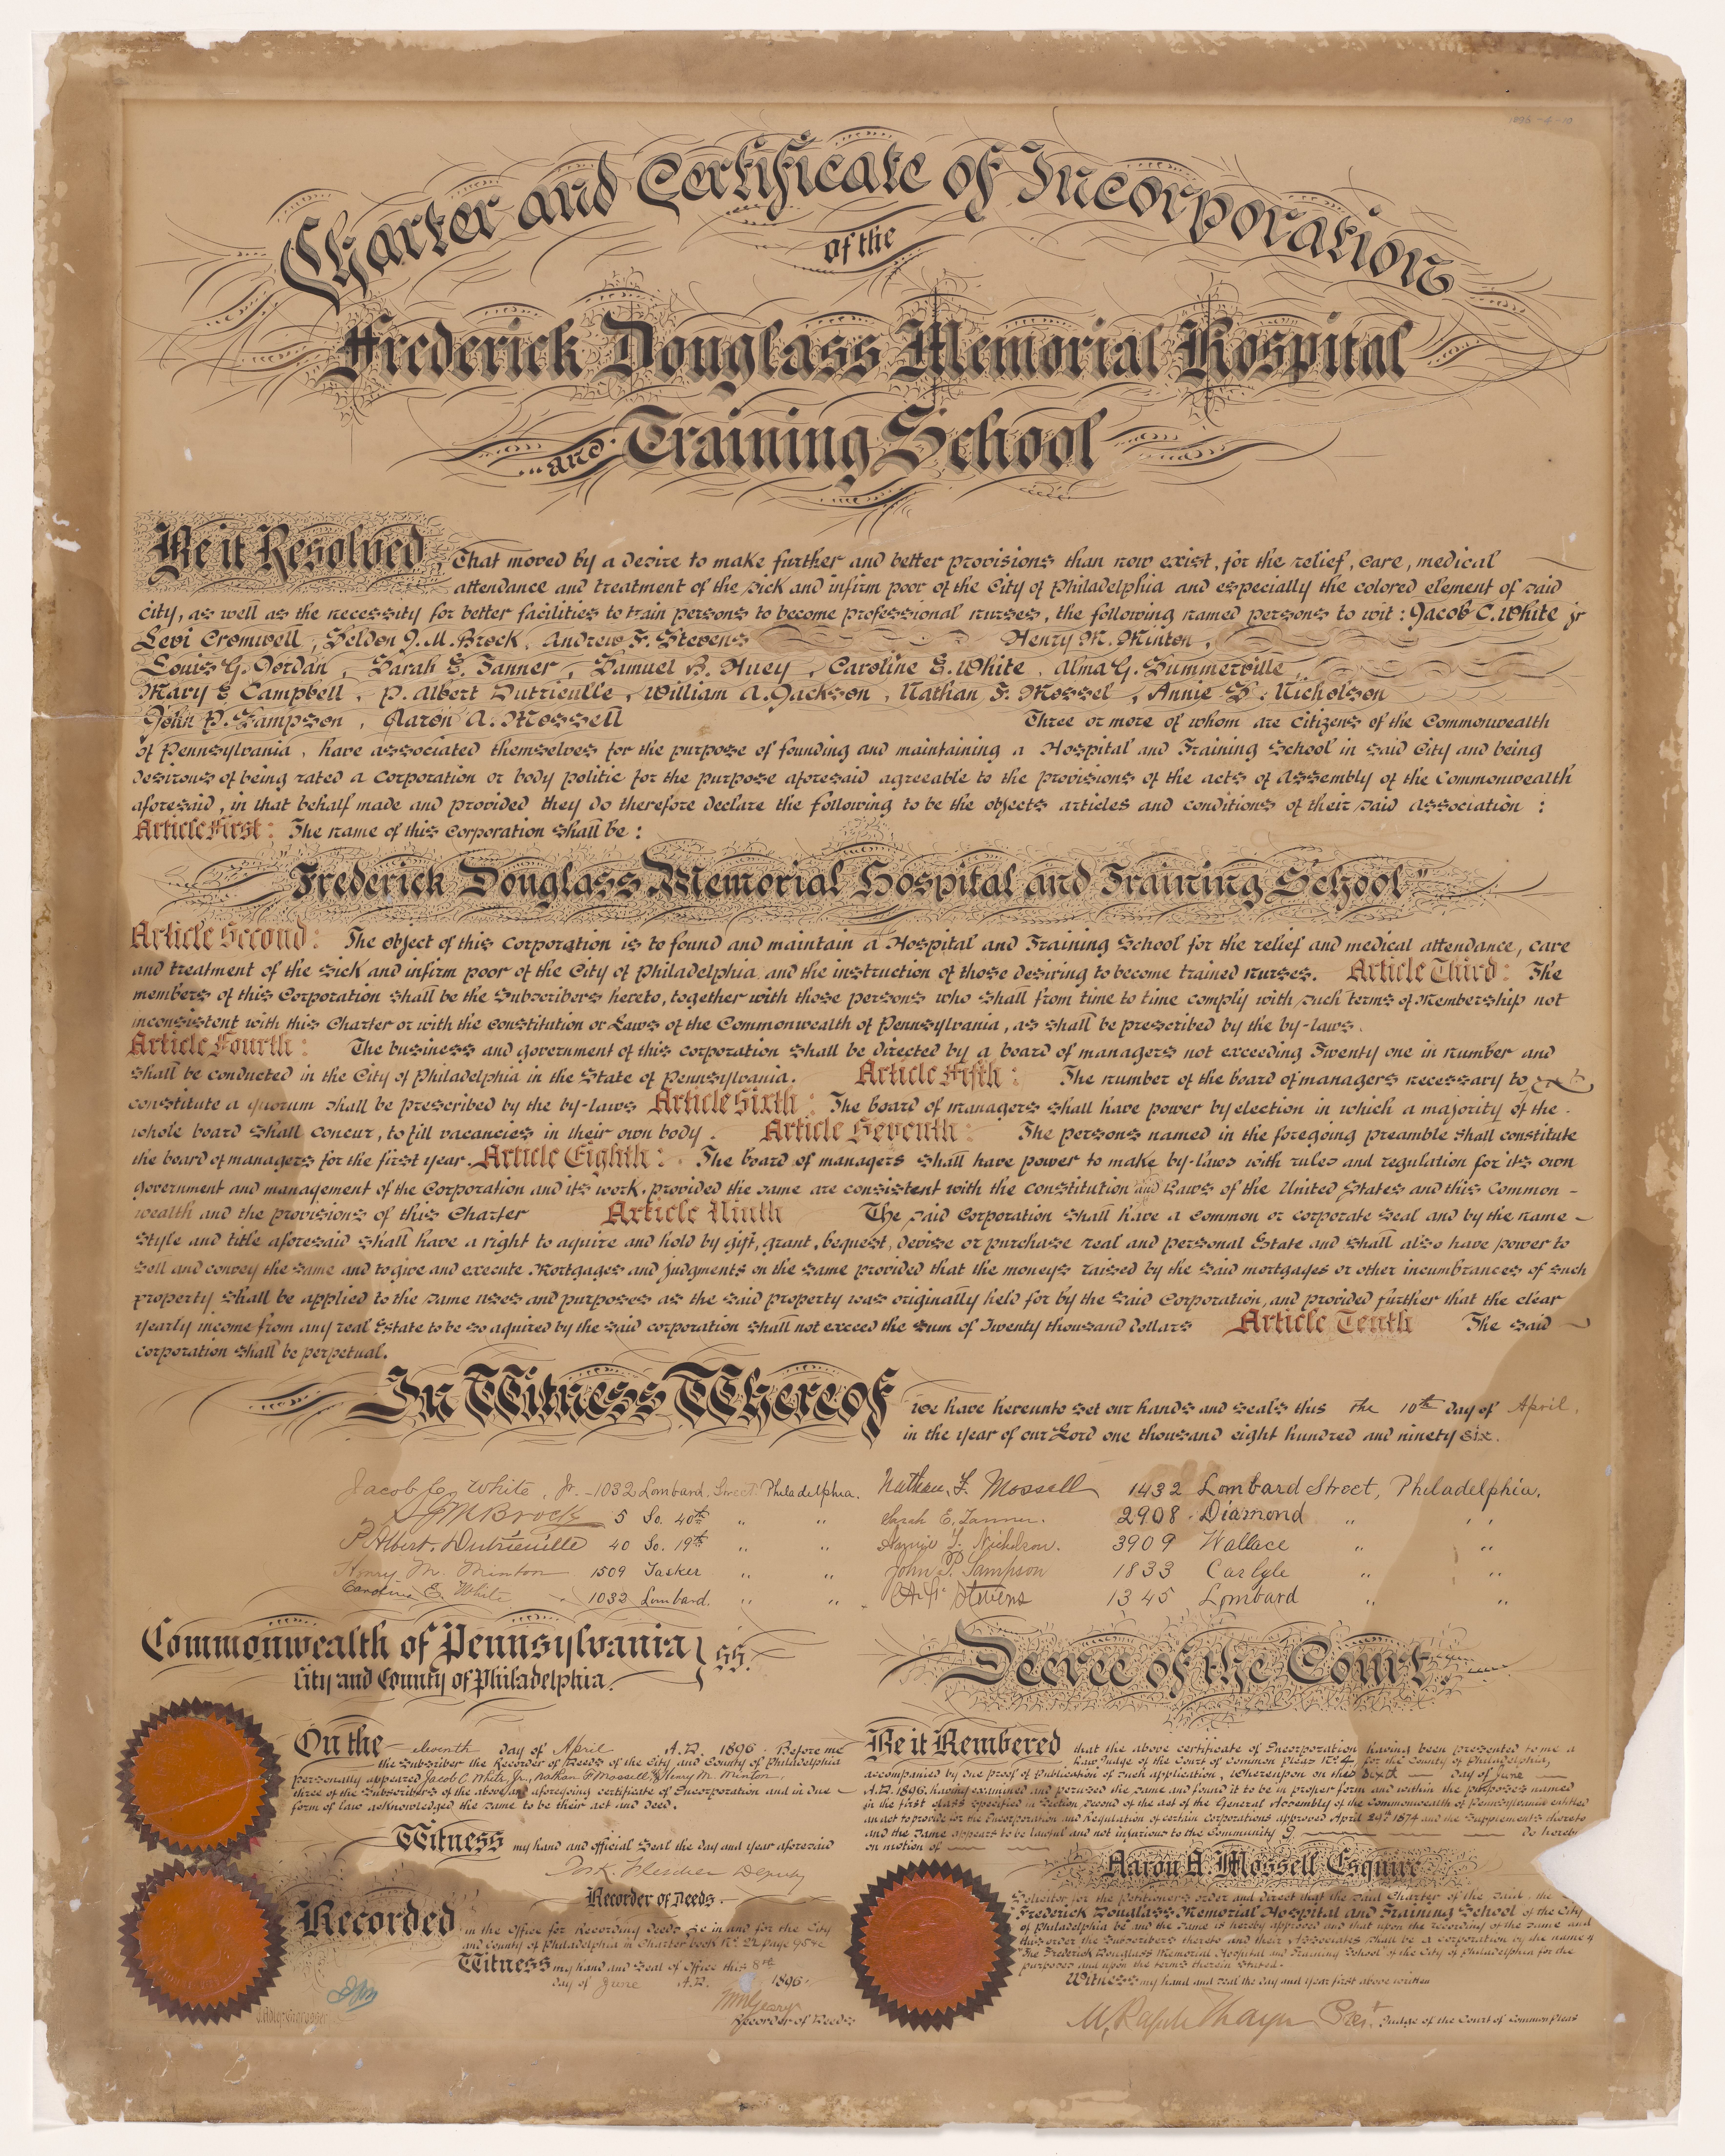 1896-4-10
Charter and Certificate of Incorporation
of the
Frederick Douglass Memorial Hospital
and Training School
Be it Resolved, That moved by a desire to make further and better provisions than now exist, for the relief, care, medical
attendance and treatment of the sick and infirm poor of the City of Philadelphia and especially the colored element of said
city, as well as the necessity for better facilities to train persons to become professional nurses, the following named persons to wit: Jacob C. White jr
Levi Cromwell, Seldon J. M. Brock, Andrew F. Stevens Henry M. Minton,
Louis G. Jordan, Sarah E. Tanner, Samuel B. Huey, Caroline E. White, Alma G. Summerville,
Mary E Campbell, P. Albert Dutrieuille, William A. Jackson, Nathan F. Mossel, Annie S. Nicholson
John P. Sampson, Aaron A. Mossell Three or more of whom are citizens of the Commonwealth
of Pennsylvania, have associated themselves for the purpose of founding and maintaining a Hospital and Training School in said City and being
desirous of being rated a Corporation or body politic for the purpose aforesaid agreeable to the provisions of the acts of Assembly of the Commonwealth
aforesaid, in that behalf made and provided they do therefore declare the following to be the objects articles and conditions of their said association :
Article First: The name of this Corporation shall be :
"Frederick Douglass Memorial Hospital and Training School"
Article Second: The object of this Corporation is to found and maintain a Hospital and Training School for the relief and medical attendance, care
and treatment of the sick and infirm poor of the City of Philadelphia and the instruction of those desiring to become trained nurses. Article Third: The
members of this Corporation shall be the Subscribers hereto, together with those persons who shall from time to time comply with such terms of Membership not
inconsistent with this Charter or with the constitution or Laws of the Commonwealth of Pennsylvania, as shall be prescribed by the by-laws.
Article Fourth: The business and government of this corporation shall be directed by a board of managers not exceeding Twenty one in number and
shall be conducted in the City of Philadelphia in the State of Pennsylvania. Article Fifth: The number of the board of managers necessary to
constitute a quorum shall be prescribed by the by-laws Article Sixth: The board of managers shall have power by election in which a majority of the
whole board shall concur, to fill vacancies in their own body. Article Seventh: The persons named in the foregoing preamble shall constitute
the board of managers for the first year. Article Eighth: The board of managers shall have power to make by-laws with rules and regulation for its own
government and management of the Corporation and its work, provided the same are consistent with the constitution and Laws of the United States and this Common-
wealth and the provisions of this Charter Article Ninth The said Corporation shall have a common or corporate seal and by the name
style and title aforesaid shall have a right to aquire and hold by gift, grant, bequest, devise or purchase real and personal Estate and shall also have power to
sell and convey the same and to give and execute Mortgages and judgments on the same provided that the moneys raised by the said mortgages or other incumbrances of such
property shall be applied to the same uses and purposes as the said property was originally held for by the said Corporation, and provided further that the clear
yearly income from any real Estate to be so aquired by the said corporation shall not exceed the sum of Twenty thousand dollars Article Tenth The said
corporation shall be perpetual.
In Witness Whereof we have hereunto set our hands and seals this the 10th day of April,
in the year of our Lord one thousand eight hundred and ninety six.
Jacob C. White, Jr. - 1032 Lombard Street Philadelphia.
S J M Brock 5 So. 40th " "
P. Albert Dutrieuille 40 So. 19th " "
Henry M. Minton 1509 Tasker " "
Caroline E. White 1032 Lombard. " "
Nathan F. Mossell 1432 Lombard Street, Philadelphia.
Sarah E. Tanner. 2908 Diamond " "
Annie S. Nicholson. 3909 Wallace " "
John P. Sampson 1833 Carlyle " "
A. F. Stevens 1345 Lombard " "
Commonwealth of Pennsylvania } ss.
City and County of Philadelphia.
On the eleventh day of April A.D. 1896. Before me
the Subscriber the Recorder of Deeds of the City and County of Philadelphia
personally appeared Jacob C. White, Jr., Nathan F. Mossell, & Henry M. Minton,
three of the Subscribers of the above and aforegoing certificate of Incorporation and in due
form of law acknowledged the same to be their act and deed.
Witness my hand and official Seal the day and year aforesaid
Jos. K. Fletcher Deputy
Recorder of Deeds.
Recorded in the Office for Recording Deeds &c in and for the City
and County of Philadelphia in Charter book No. 22 page 95 &c
Witness my hand and Seal of Office this 8th
day of June A.D. 1896.
Wm Geary
Recorder of Deeds
Decree of the Court.
Be it Rembered that the above certificate of Incorporation having been presented to me a
Law Judge of the Court of Common Pleas No. 4, for the County of Philadelphia,
accompanied by due proof of Publication of such application, Whereupon on this sixth day of June
A.D. 1896, having examined and perused the same and found it to be in proper form and within the purposes named
in the first class specified in Section Second of the act of the General Assembly of the Commonwealth of Pennsylvania entitled
an act to provide for the Incorporation and Regulation of certain corporations approved April 29th 1874 and the Supplements thereto
and the same appears to be lawful and not injurious to the Community I Do hereby
on motion of
Aaron A. Mossell Esquire
Solicitor for the Petitioners order and direct that the said Charter of the said the
Frederick Douglass Memorial Hospital and Training School of the City
of Philadelphia be and the same is hereby approved and that upon the recording of the same and
this order the Subscribers thereto and their Associates shall be a corporation by the name of
"The Frederick Douglass Memorial Hospital and Training School" of the City of Philadelphia for the
purposes and upon the terms therein stated.
Witness my hand and seal the day and year first above written
M. Russell Thayer Prest. Judge of the Court of Common Pleas